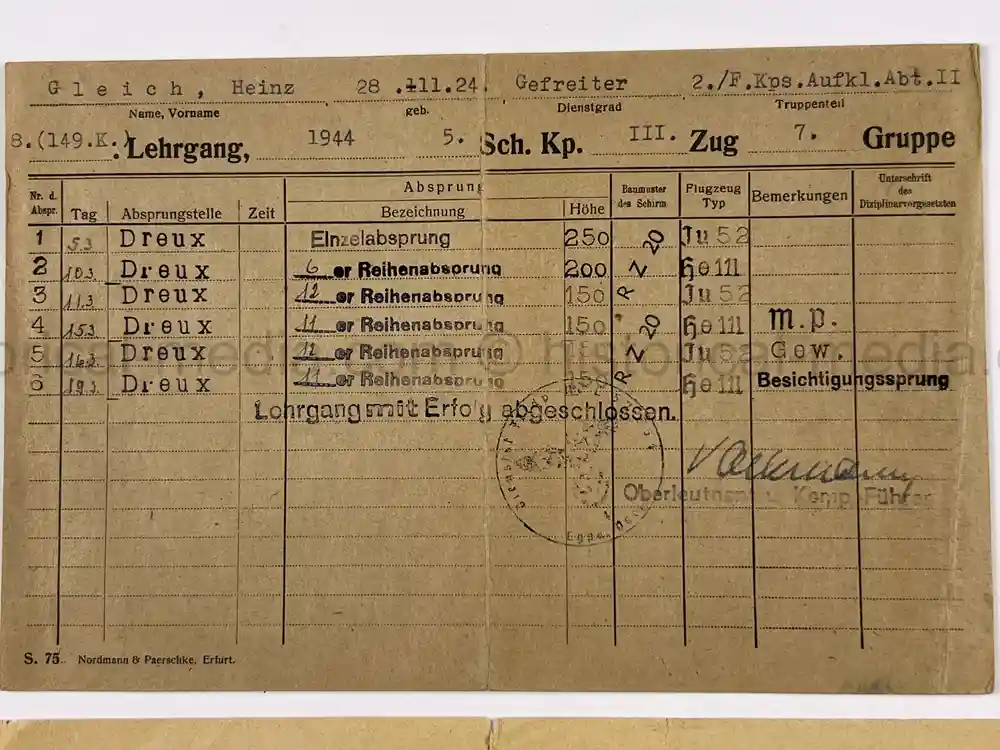 Gleich, Heinz 28.111.24. Gefreiter 2./F.Kps.Aufkl.Abt.II
Name, Vorname geb. Dienstgrad Truppenteil
8.(149.K.) Lehrgang, 1944 5. Sch. Kp. III. Zug 7. Gruppe
Nr. d. Abspr. Tag Absprungstelle Zeit Absprung Bezeichnung Höhe Baumuster des Schirm Flugzeug Typ Bemerkungen Unterschrift des Diziplinarvorgesetzten
1 5.3. Dreux Einzelabsprung 250 Ju 52
2 10.3. Dreux 6 er Reihenabsprung 200 He 111
3 11.3. Dreux 12 er Reihenabsprung 150 Ju 52
4 15.3. Dreux 11 er Reihenabsprung 150 He 111 M.P.
5 16.3. Dreux 12 er Reihenabsprung 150 Ju 52 Gew.
6 19.3. Dreux 11 er Reihenabsprung 150 He 111 Besichtigungssprung
RZ 20
RZ 20
Lehrgang mit Erfolg abgeschlossen.
Oberleutnant u. Komp.-Führer
S. 75. Nordmann & Paerschke, Erfurt.